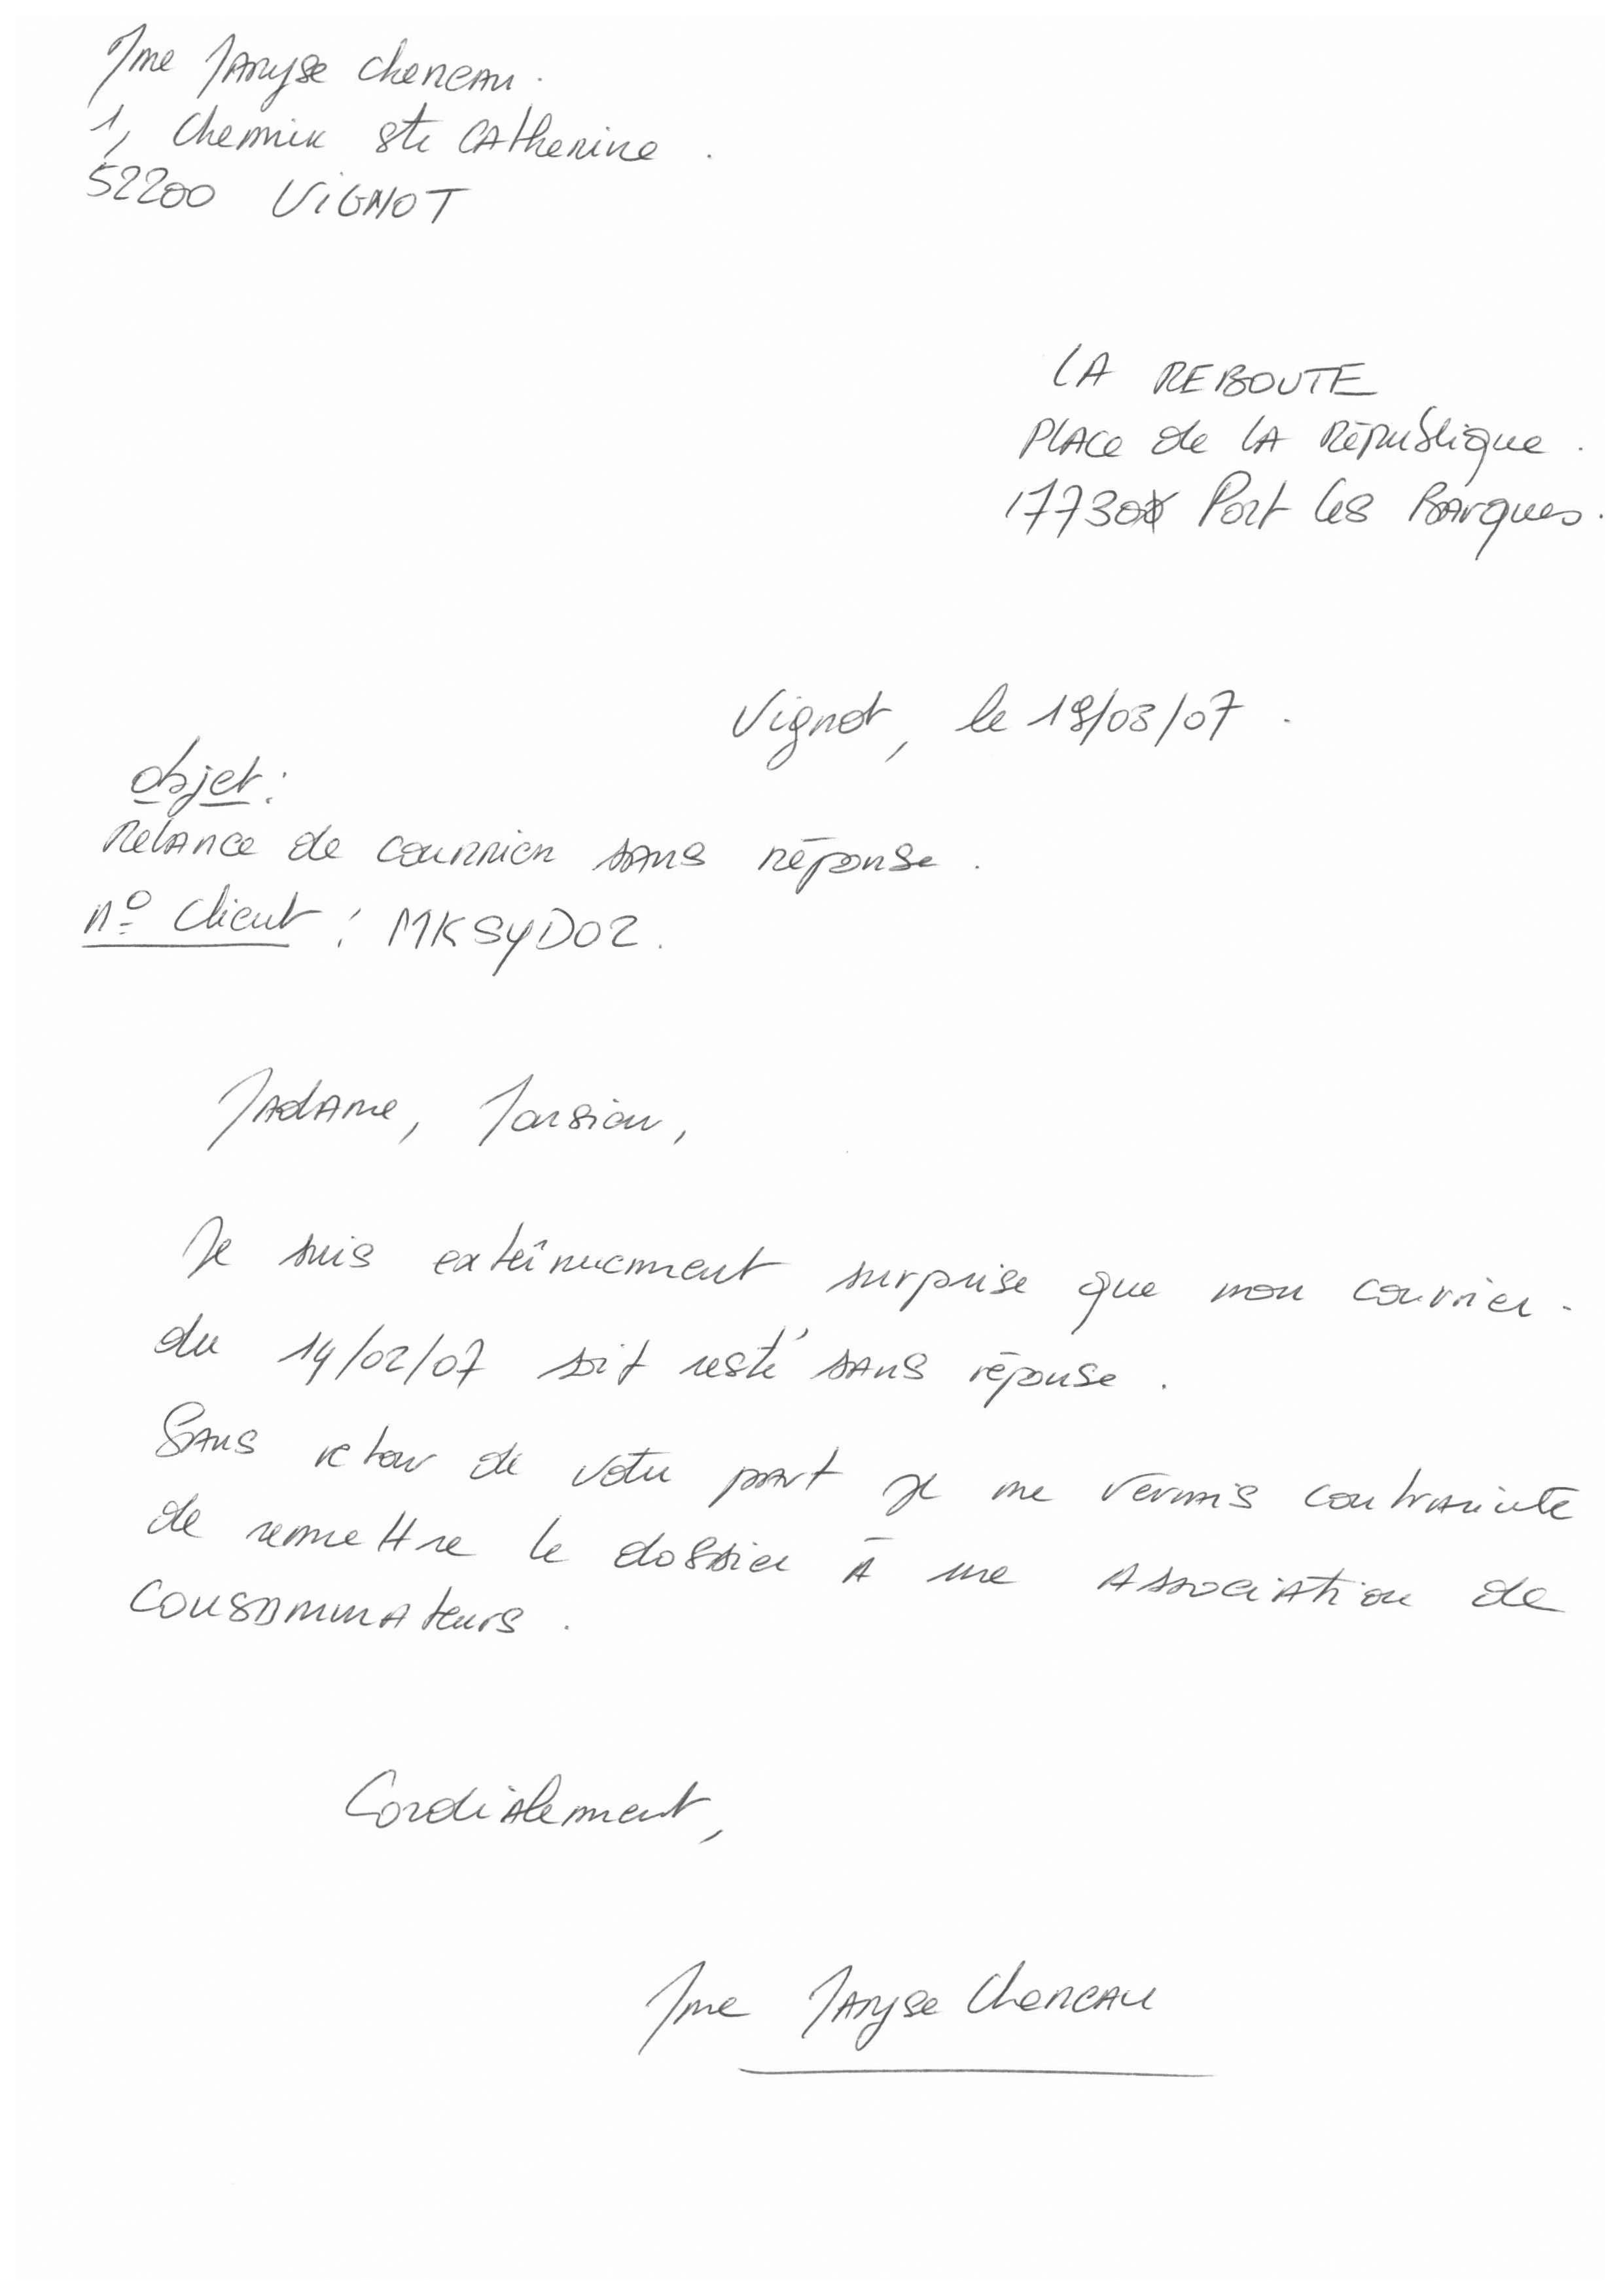 Mme Maryse Cheneau.
1, Chemin ste Catherine.
52200 VIGNOT
LA REBOUTE
Place de la République.
17730 Port les Barques.
Vignot, le 18/03/07.
Objet:
Relance de courrier sans réponse.
n° Client : MKSYD02.
Madame, Monsieur,
Je suis extrêmement surprise que mon courrier
du 14/02/07 soit resté sans réponse.
Sans retour de votre part je me verrais contrainte
de remettre le dossier à une association de
consommateurs.
Cordialement,
Mme Maryse Cheneau